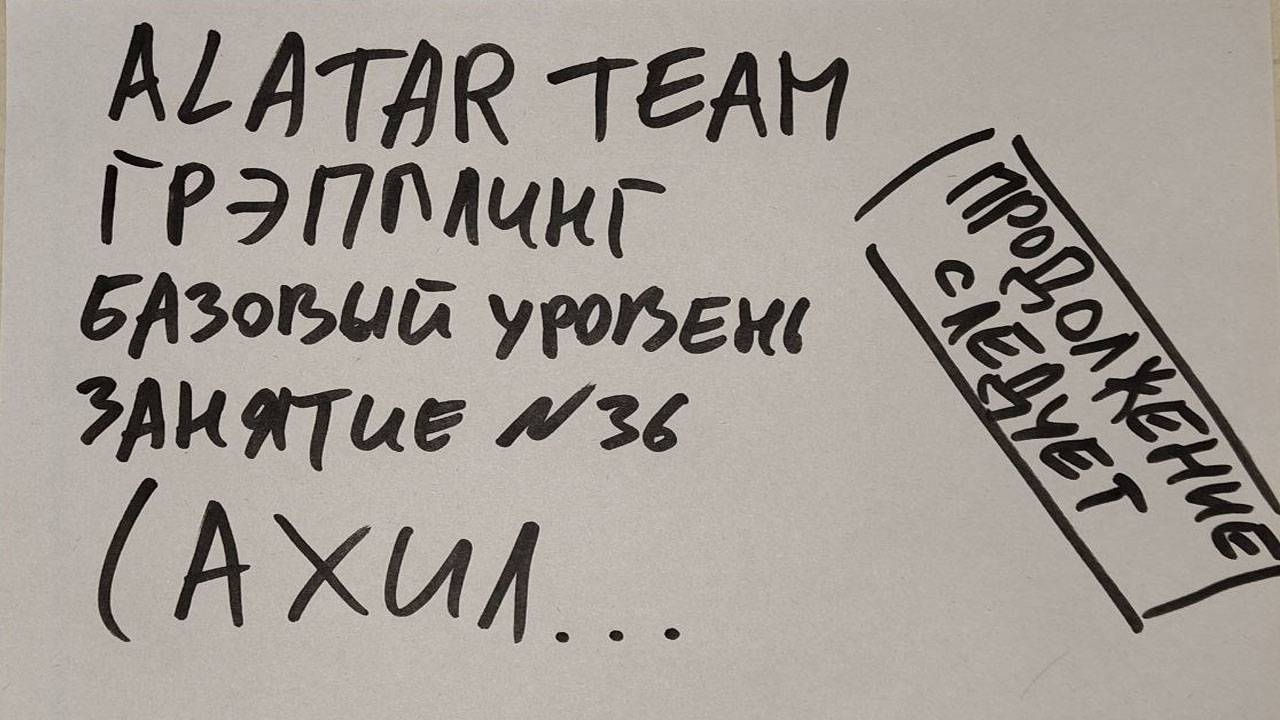 ALATAR TEAM
ГРЭППЛИНГ
БАЗОВЫЙ УРОВЕНЬ
ЗАНЯТИЕ №36
(АХИЛ...
ПРОДОЛЖЕНИЕ
СЛЕДУЕТ